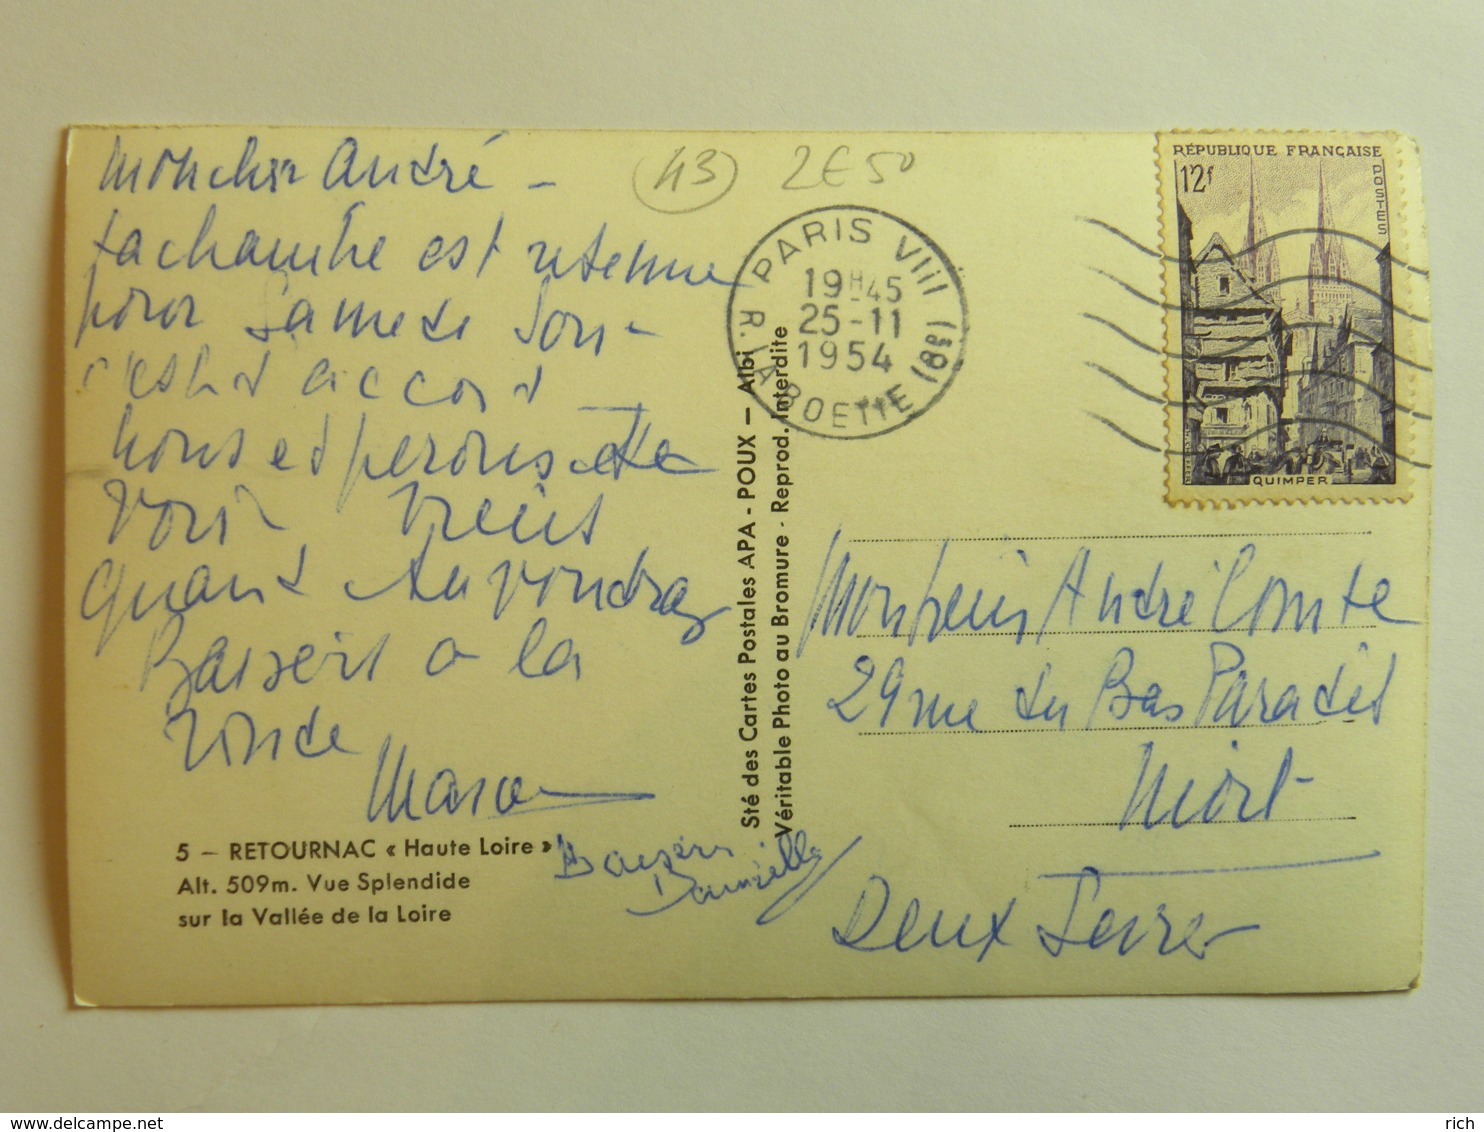 Mon cher André -
ta chambre est retenue
pour Samedi Soir -
c'est d'accord
nous espérons te
voir
quand tu voudras
Baisers a la
ronde
Baisers
5 - RETOURNAC « Haute Loire »
Alt. 509m. Vue Splendide
sur la Vallée de la Loire
43
2€50
PARIS VIII
19H45
25-11
1954
R. LA BOETIE (8E)
Sté des Cartes Postales APA - POUX — Albi
Véritable Photo au Bromure - Reprod. Interdite
RÉPUBLIQUE FRANÇAISE
12F
POSTES
QUIMPER
Monsieur André Comte
29 rue du Bas Paradis
Niort
Deux Sèvres
www.delcampe.net
rich